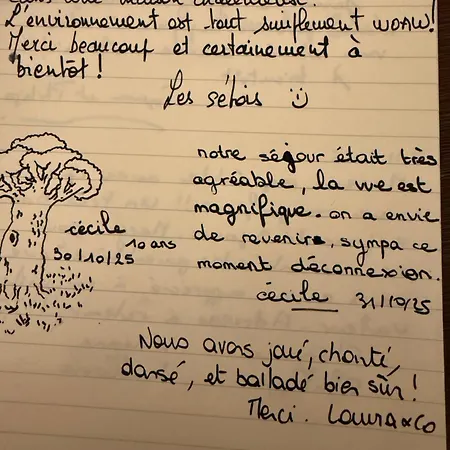 L'environnement est tout simplement WOAW!
Merci beaucoup et certainement à
bientôt!
Les sétois
notre séjour était très
agréable, la vue est
magnifique. on a envie
de revenire, sympa ce
moment déconnexion.
cécile 31/10/25
cécile
10 ans
30/10/25
Nous avons joué, chanté,
dansé, et balladé bien sûr!
Merci. Laura & Co